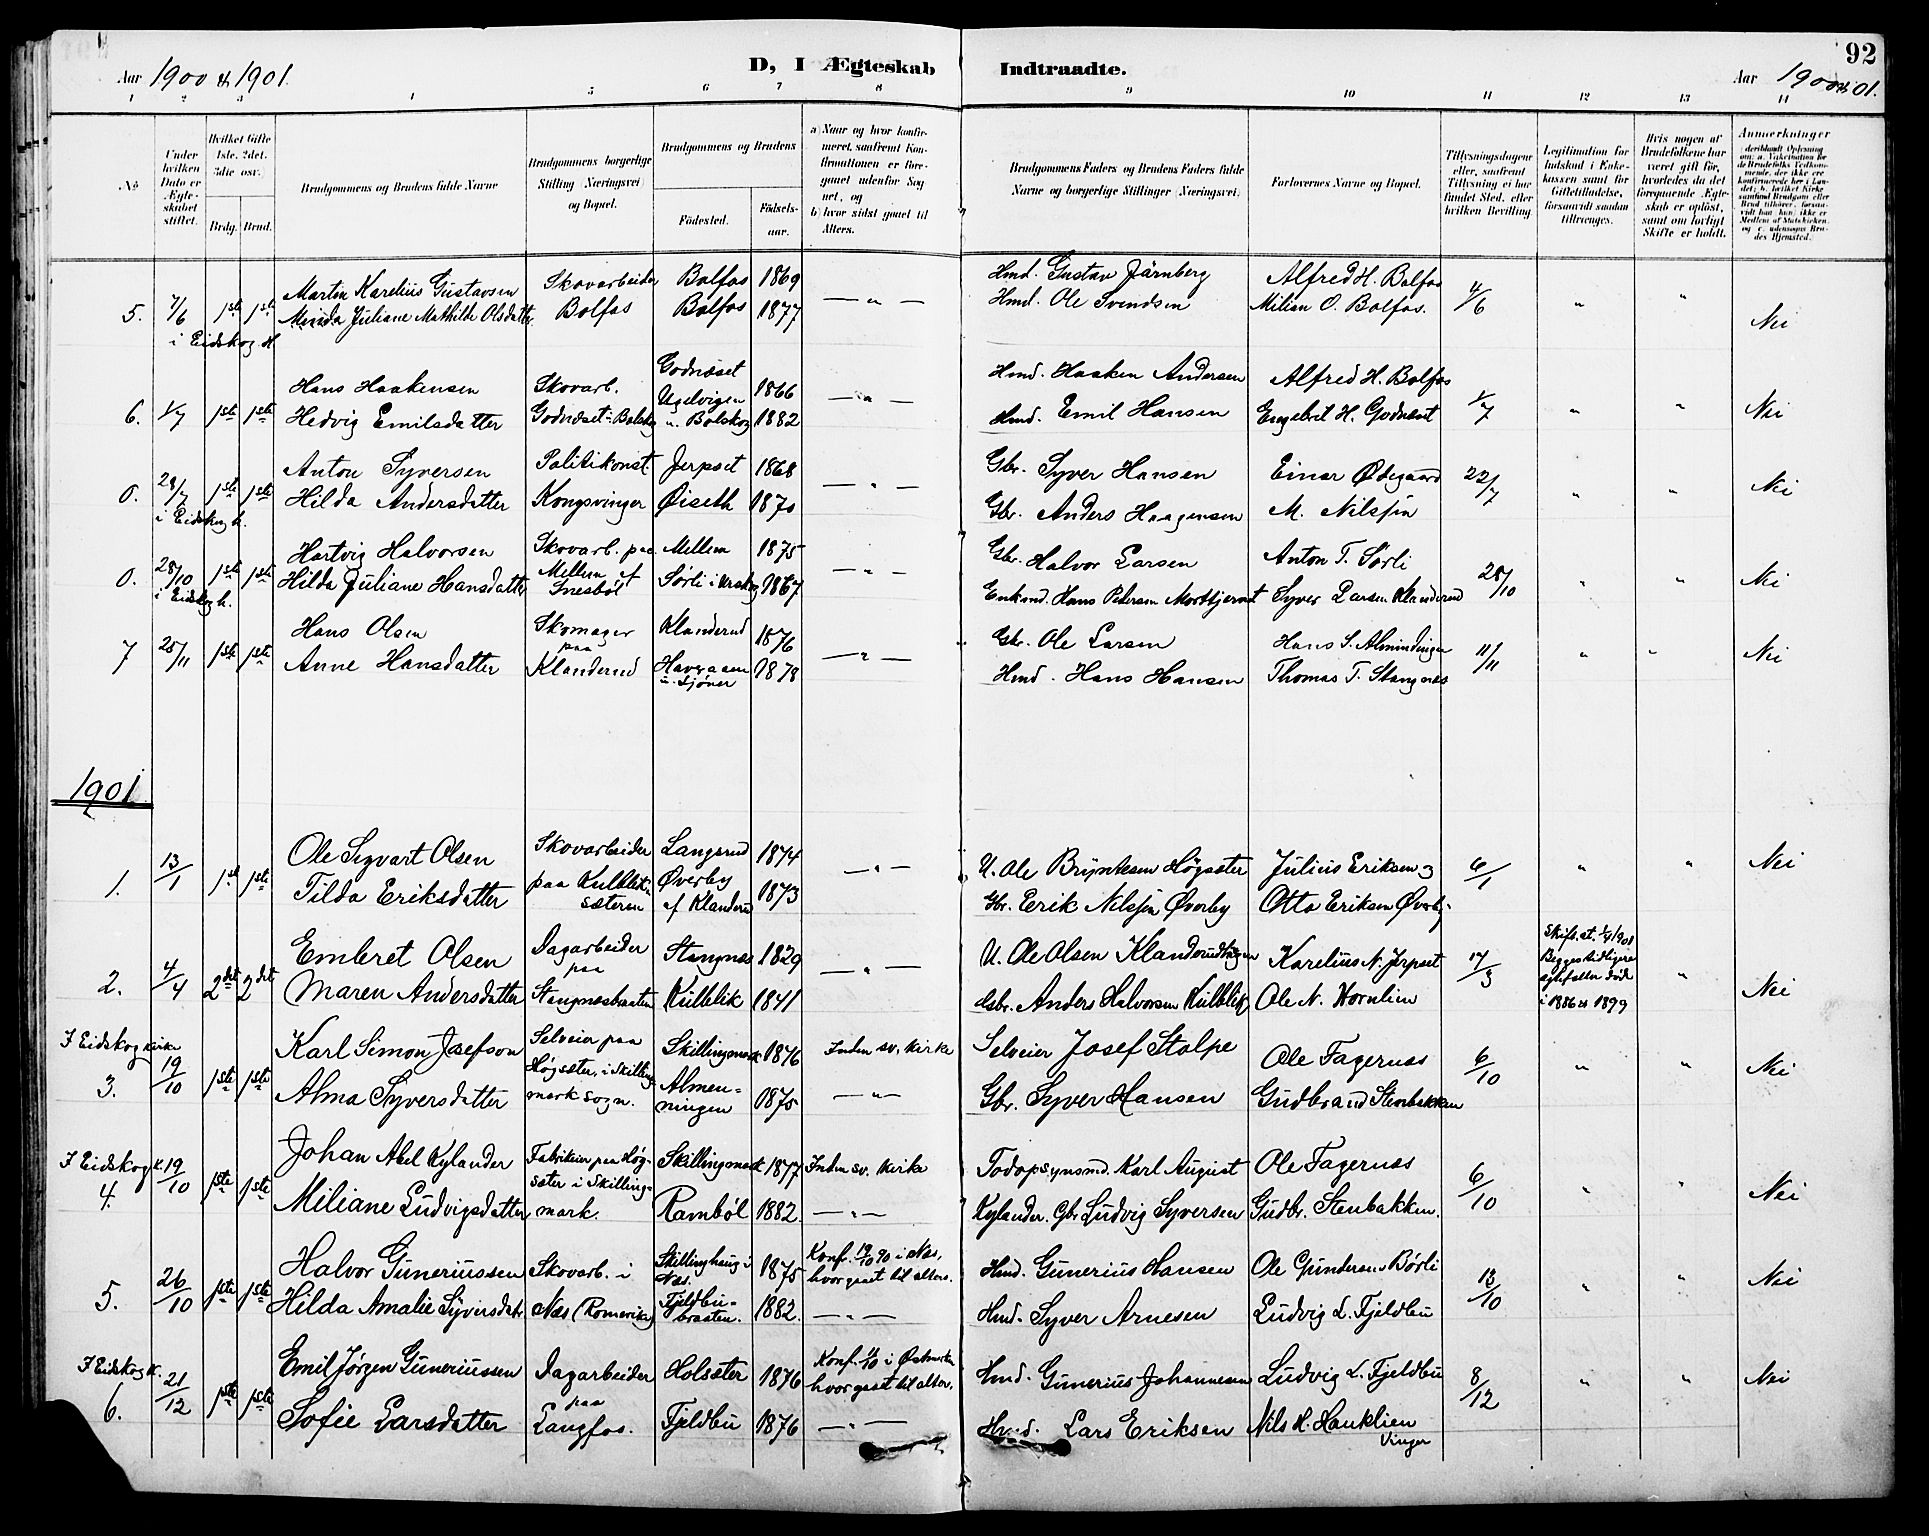 92
Aar 1900 & 1901.
D, I Ægteskab Indtraadte.
Aar 1900 & 01.
1 2 3 4 5 6 7 8 9 10 11 12 13 14
No
Under hvilken Dato er Ægteskabet stiftet.
Hvilket Gifte 1ste. 2det. 3die osv.
Brdg. Brud.
Brudgommens og Brudens fulde Navne
Brudgommens borgerlige Stilling (Næringsvei) og Bopæl.
Brudgommens og Brudens
Fødested.
Fødselsaar.
a) Naar og hvor konfirmeret, saafremt Konfirmationen er foregaaet udenfor Sognet, og
b) hvor sidst gaaet til Alters.
Brudgommens Faders og Brudens Faders fulde Navne og borgerlige Stillinger (Næringsvei).
Forlovernes Navne og Bopæl.
Tillysningsdagene eller, saafremt Tillysning ei har fundet Sted, efter hvilken Bevilling
Legitimation for Indskud i Enkekassen samt for Giftetilladelse, forsaavidt saadan tiltrænges.
Hvis nogen af Brudefolkene har været gift før, hvorledes da det foregaaende Ægteskab er opløst, samt om lovligt Skifte er holdt.
Anmerkninger
5. 7/6 1ste 1ste Martin Karelius Gustavsen Skovarbeider Bolfos 1869 Hmd. Gustav Järnberg Alfred H. Bolfos 4/6 Nei
Minda Juliane Mathilde Olsdatter Bolfos Bolfos 1877 Hmd. Ole Svendsen Milian O. Bolfos.
i Eidskog K.
6. 1/7 1ste 1ste Hans Haakensen Skovarb. Godnæset Ugelvigen 1866 Hmd. Haaken Andersen Alfred H. Bolfos 1/7 Nei
Hedvig Emilsdatter Godnæset u. Bolskog 1882 Hmd. Emil Hansen Engebret H. Godnæset
0. 28/7 1ste 1ste Anton Syversen Politikonst. Jerpset 1868 Gbr. Syver Hansen Einar Ødegaard 22/7 Nei
Hilda Andersdatter Kongsvinger Øiseth 1870 Gbr. Anders Haagensen M. Nilssen
i Eidskog k.
0. 28/10 1ste 1ste Hartvig Halvorsen Skovarb. paa Mellem 1875 Gbr. Halvor Larsen Anton T. Sørli 28/10 Nei
Hilda Juliane Hansdatter Mellem af Gnesbøl Sørli i Urskog 1867 Enkmd. Hans Pedersen Morttjernet Syver Larsen Klanderud
i Eidskog k.
7 25/11 1ste 1ste Hans Olsen Skomager Klanderud 1876 Gbr. Ole Larsen Hans S. Almindingen 11/11 Nei
Anne Hansdatter paa Klanderud Haveraaen u. Sjøner 1878 Hmd. Hans Hansen Thomas T. Stangnæs
1901
1. 13/1 1ste 1ste Ole Sigvart Olsen Skovarbeider Langerud 1874 U. Ole Bryntesen Högsæter Julius Eriksen og 6/1 Nei
Tilda Eriksdatter paa Kulbliksæteren Øverby af Klanderud 1873 Gbr. Erik Nilssen Øverby Otto Eriksen Øverby.
2. 4/4 2det 2det Embret Olsen Dagarbeider Stangnæs 1829 U. Ole Olsen Klanderudhagen Karelius N. Jerpset 17/3 Skift.at. 1/4 1901 Begges tidligere ægtefæller døde i 1886 & 1899 Nei
Maren Andersdatter paa Stangnæsbraaten Kulblik 1841 Gbr. Anders Halvorsen Kulblik Ole N. Hornlien
I Eidskog Kirke
3. 19/10 1ste 1ste Karl Simon Josefson Selveier paa Skillingmark 1876 Inden sv. Kirke Selveier Josef Stolpe Ole Fagernæs 6/10 Nei
Alma Syversdatter Högsæter, i Skillingmark sogn. Almenningen 1875 Gbr. Syver Hansen Gudbrand Stenbakken
I Eidskog K.
4. 19/10 1ste 1ste Johan Abel Kylander Fabrikeier paa Högsæter i Skillingmark. Skillingmark 1877 Inden sv. Kirke Todopsynsmd. Karl August Ole Fagernæs 6/10 Nei
Miliane Ludvigsdatter Rambøl 1882. Kylander. Gbr. Ludvig Syversen Gudbr. Stenbakken.
5. 26/10 1ste 1ste Halvor Gunneriussen Skovarb. i Skillinghaug i Næs. 1875 Konf. 19/10 90 i Næs, hvor gaaet til alters. Hmd. Gunerius Hansen Ole Gundersen Børli 13/10 Nei
Hilda Amalie Syversdatr Næs (Romerike) Fjeldbubraaten. 1882. Hmd. Syver Arnesen Ludvig L. Fjeldbu
I Eidskog K.
6. 21/12 1ste 1ste Emil Jørgen Gunneriussen Dagarbeider Holsæter 1876 hvor gaaet til alter. Hmd. Gunerius Johannesen Ludvig L. Fjeldbu 8/12 Nei
Sofie Larsdatter paa Langfos. Fjeldbu 1876 Hmd. Lars Eriksen Nils H. Hauklien Vinger